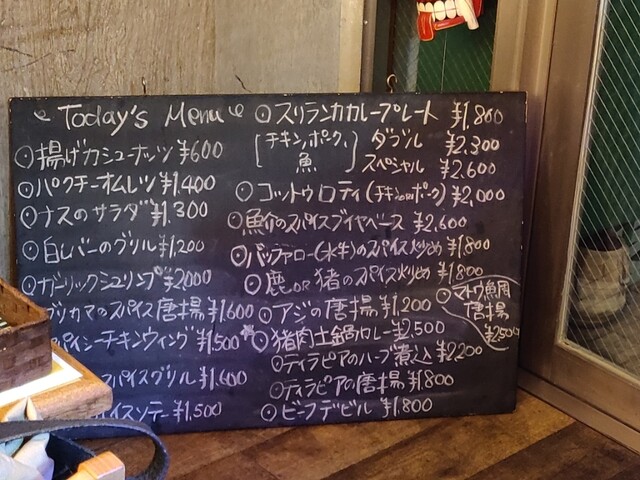 Today's Menu
◎揚げカシューナッツ ¥600
◎パクチーオムレツ ¥1.400
◎ナスのサラダ ¥1.300
◎白レバーのグリル ¥1,200
◎ガーリックシュリンプ ¥2000
ブリカマのスパイス唐揚 ¥1600
パイシーチキンウィング ¥1,500
スパイスグリル ¥1,400
パイスソテー ¥1,500
◎スリランカカレープレート ¥1,800
[チキン、ポーク、魚] ダブル ¥2,300
スペシャル ¥2,600
◎コットゥロティ(チキンorポーク) ¥2,000
◎魚介のスパイスブイヤベース ¥2,600
◎バッファロー(水牛)のスパイス炒め ¥1800
◎鹿 OR 猪のスパイス炒め ¥1800
◎アジの唐揚 ¥1,200
◎マトウ鯛
唐揚
¥2,500
◎猪肉土鍋カレー ¥2,500
◎ティラピアのハーブ煮込 ¥2,200
◎ティラピアの唐揚 ¥1800
◎ビーフデビル ¥1,800